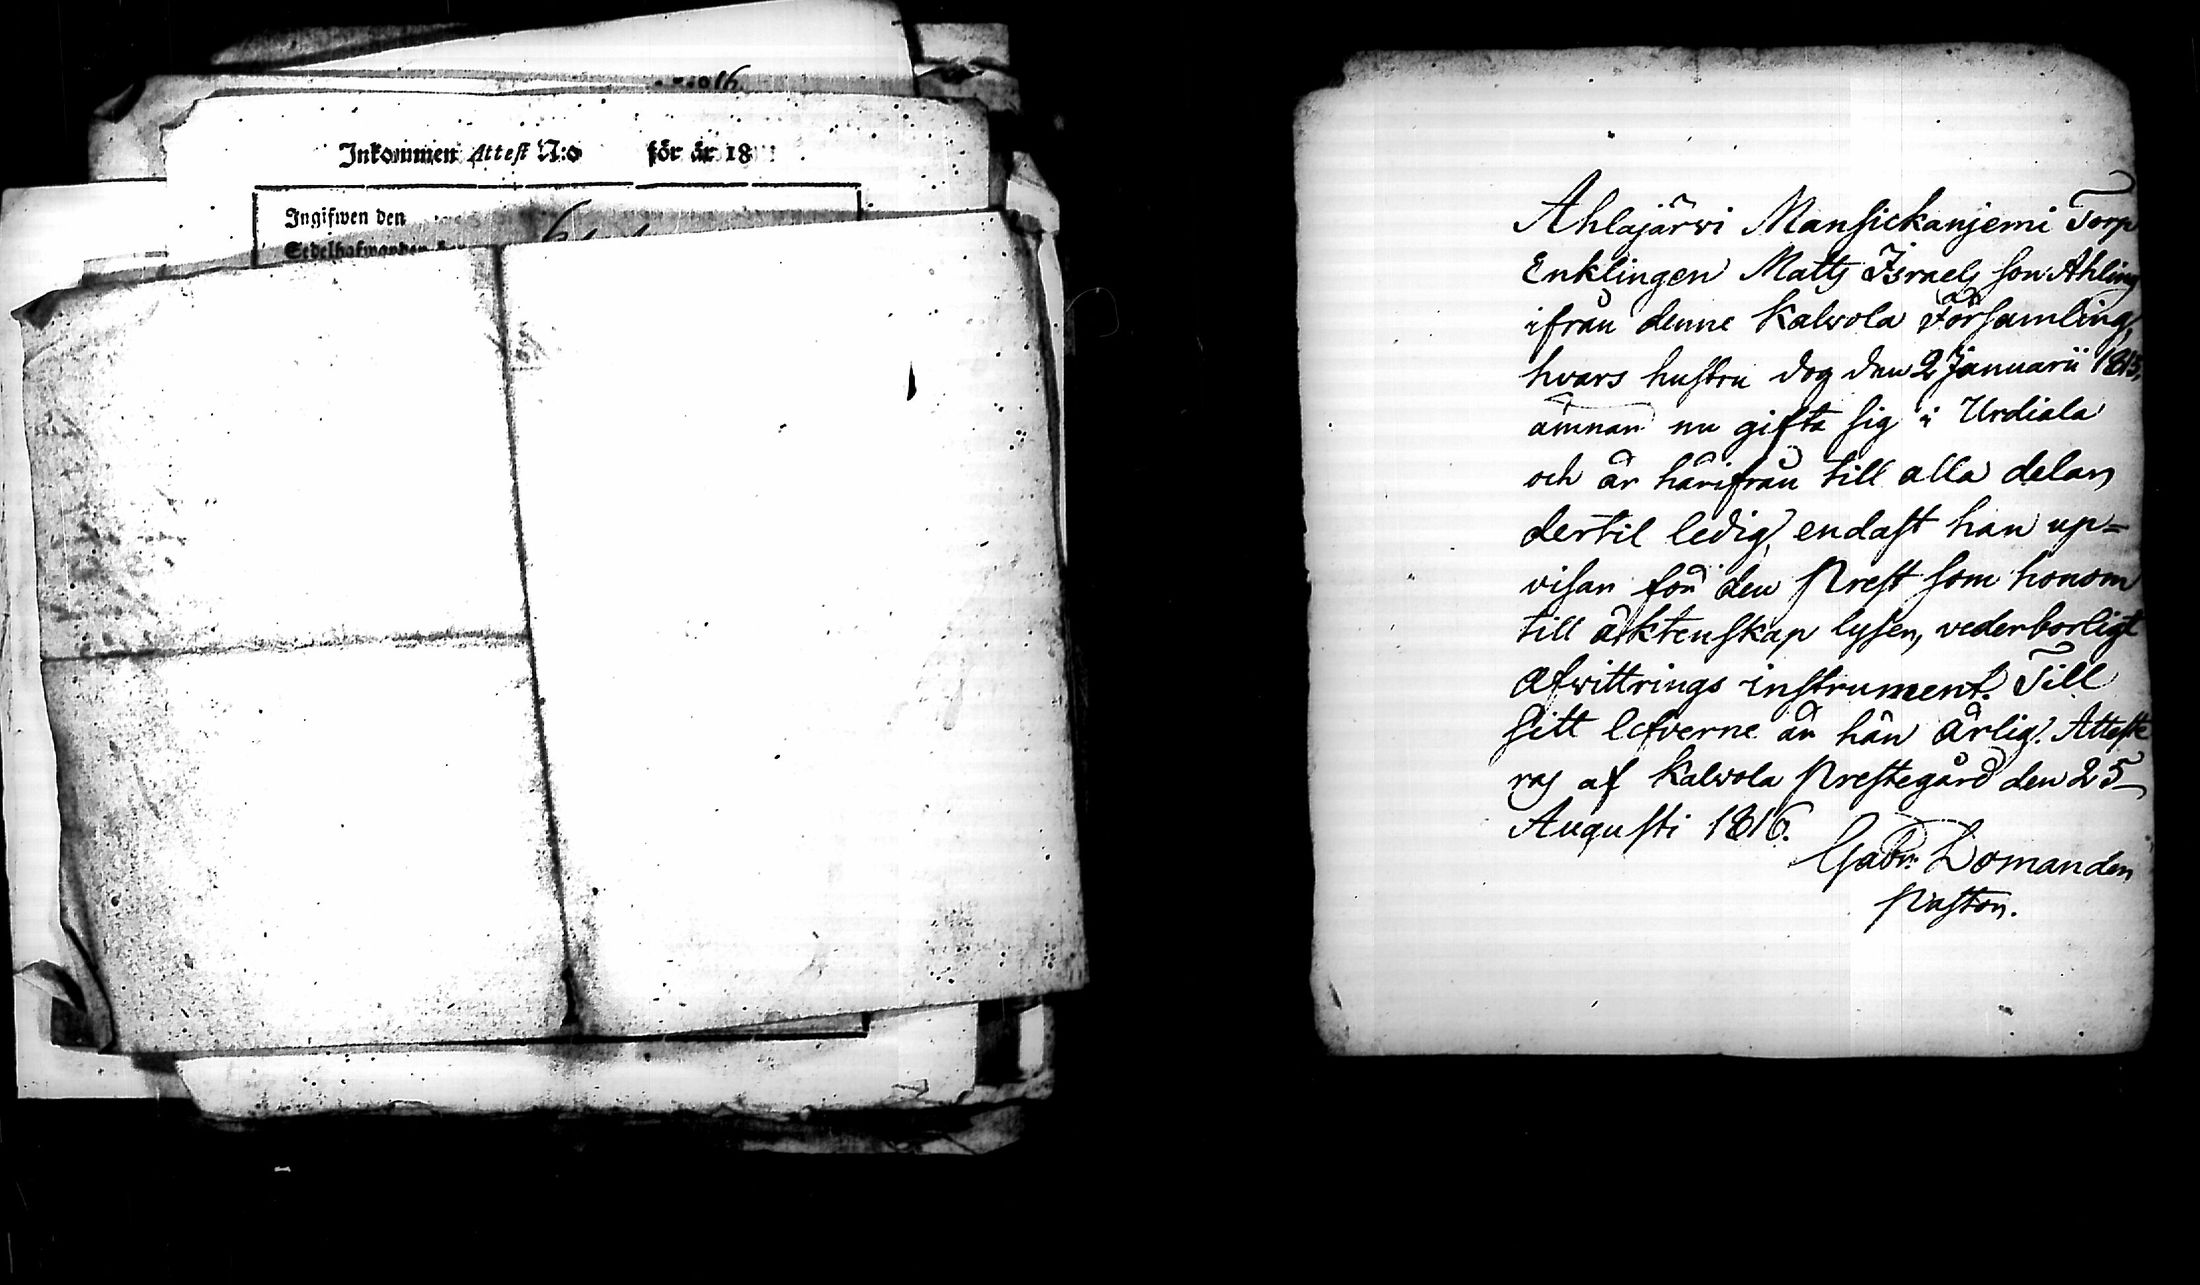 16
Inkommen Attest N:o för år 18
Ingifwen den
Sedelhafwanden
Ahlajärwi Mansickanjemi Torp
Enklingen Matts Israels son Ahling
ifrån denne Kalwola Församling,
hvars hustru dog den 2 Januarii 1815,
ämnar nu gifta sig i Urdiala
och är härifrån till alla delar
dertil ledig, endast han up=
visar för den Prest som honom
till äktenskap lyser, vederborligt
Afwittrings instrument. Till
sitt lefverne är han ärlig. Atteste
ras af Kalwola Prestegård den 25
Augusti 1816.
Gabr. Lomander
Pastor.